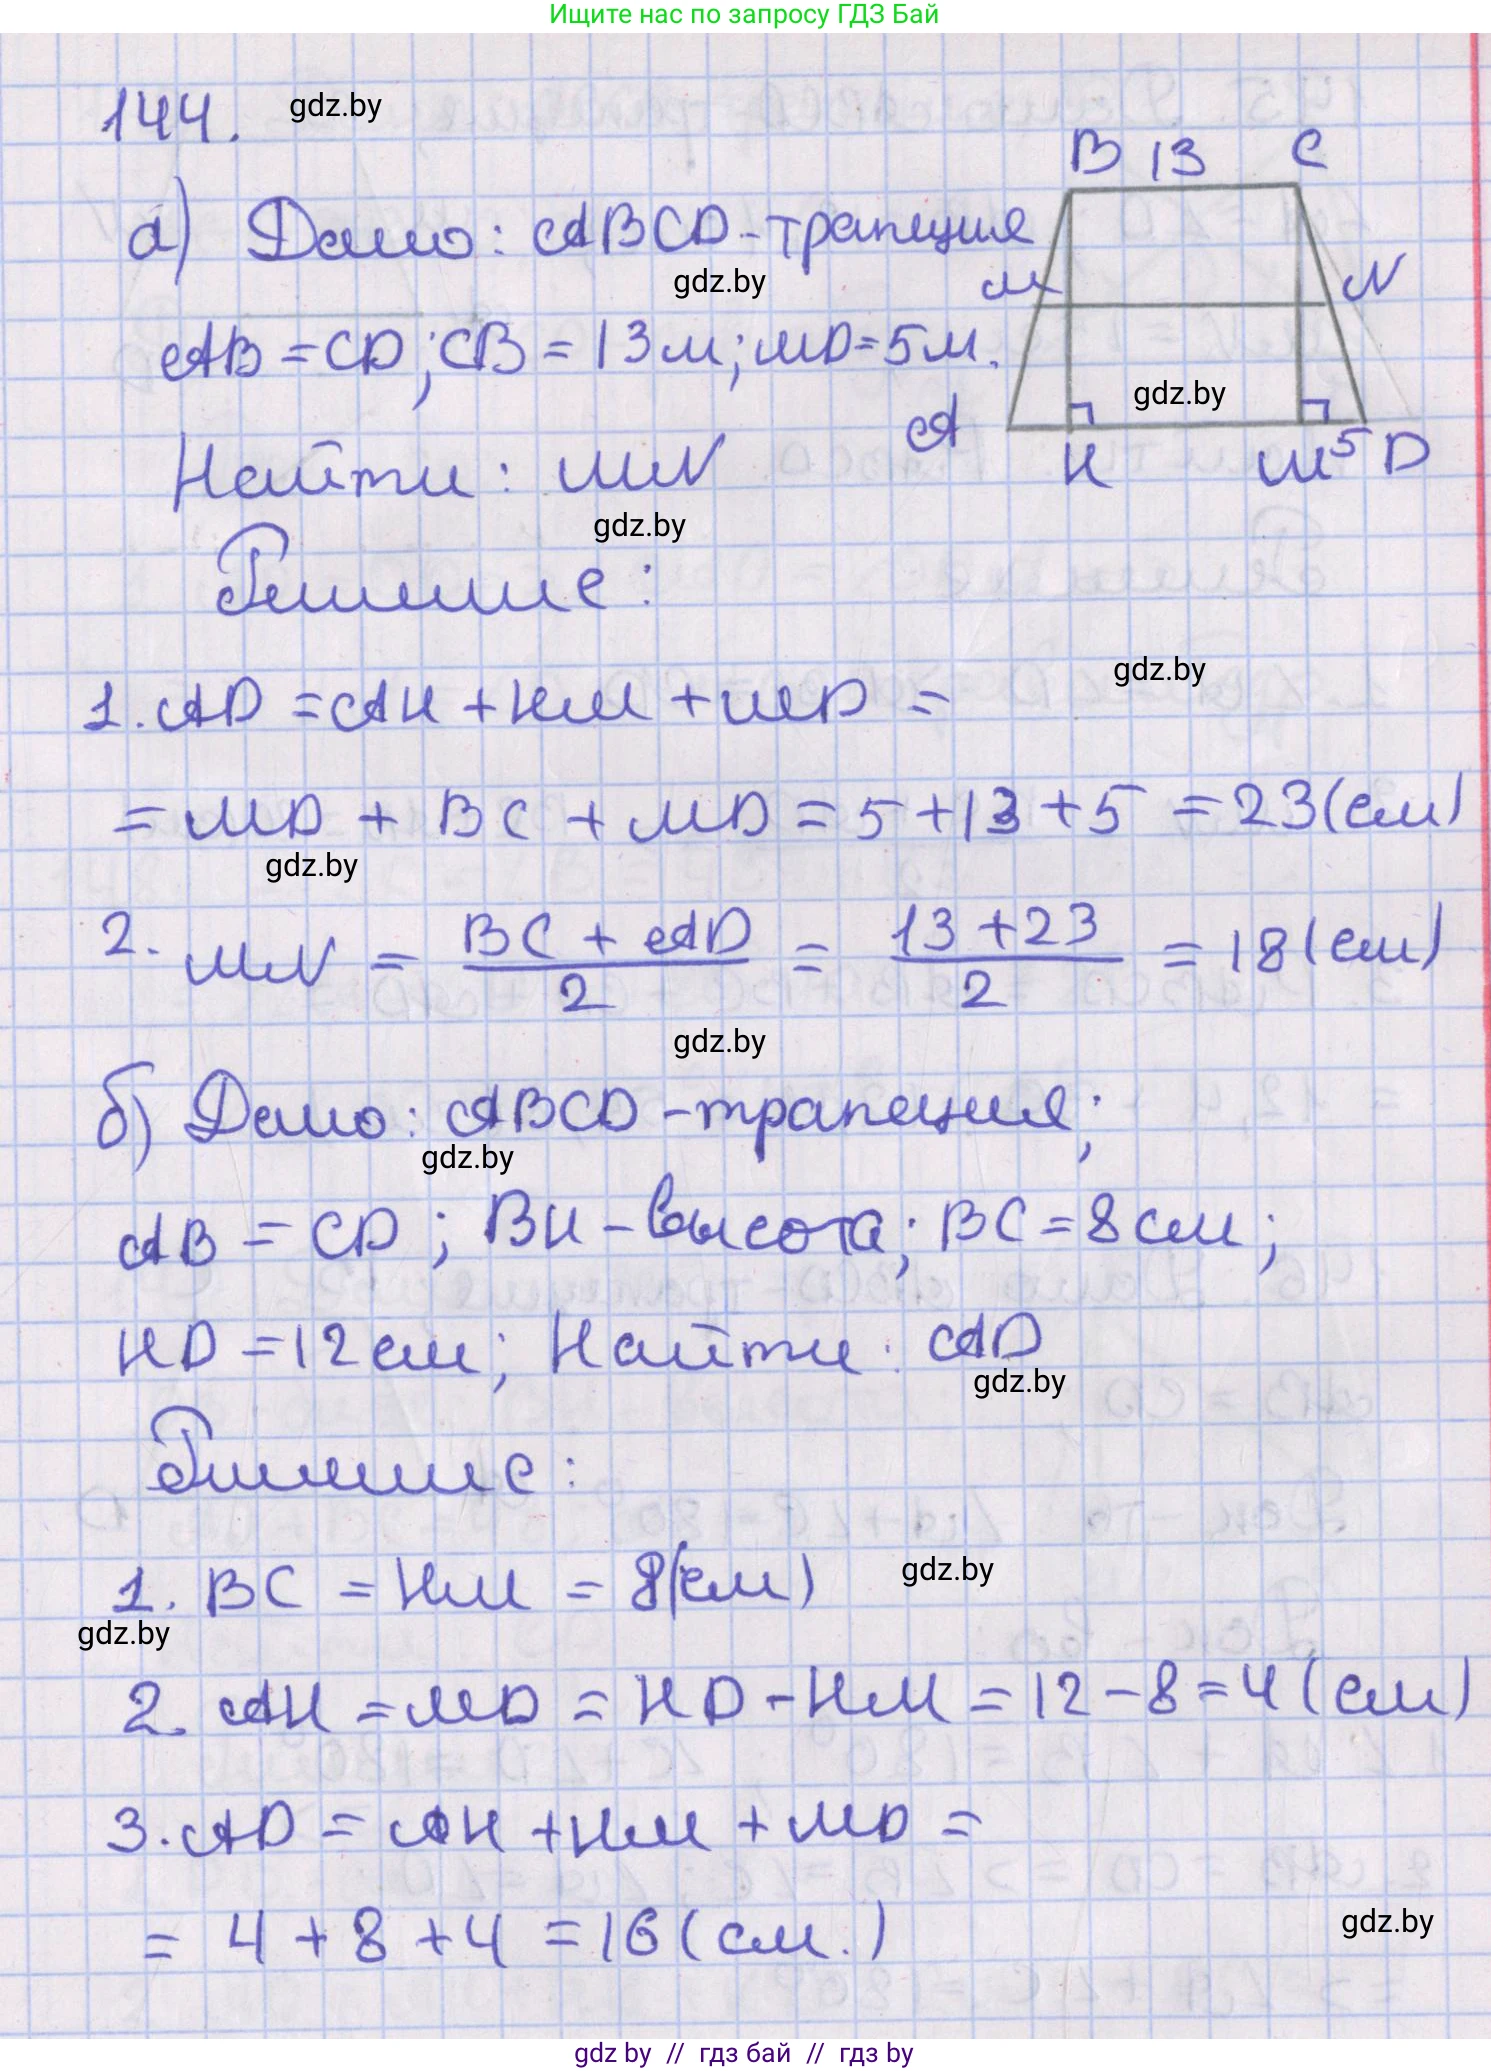 Ищите нас по запросу ГДЗ Бай
144. gdz.by
B 13 C
а) Дано: ABCD-трапеция
gdz.by
M N
AB = CD; CB = 13м; MD = 5м.
gdz.by
A H M 5 D
Найти: MN
gdz.by
Решение:
gdz.by
1. AD = AH + HM + MD =
= MD + BC + MD = 5 + 13 + 5 = 23(см)
gdz.by
2. MN = BC + AD / 2 = 13 + 23 / 2 = 18(см)
gdz.by
б) Дано: ABCD-трапеция;
gdz.by
AB = CD; BH-высота; BC = 8см;
HD = 12см; Найти: AD
gdz.by
Решение:
1. BC = HM = 8(см)
gdz.by
gdz.by
2. AH = MD = HD - HM = 12 - 8 = 4 (см)
3. AD = AH + HM + MD =
= 4 + 8 + 4 = 16 (см.)
gdz.by
gdz by // гдз бай // гдз by